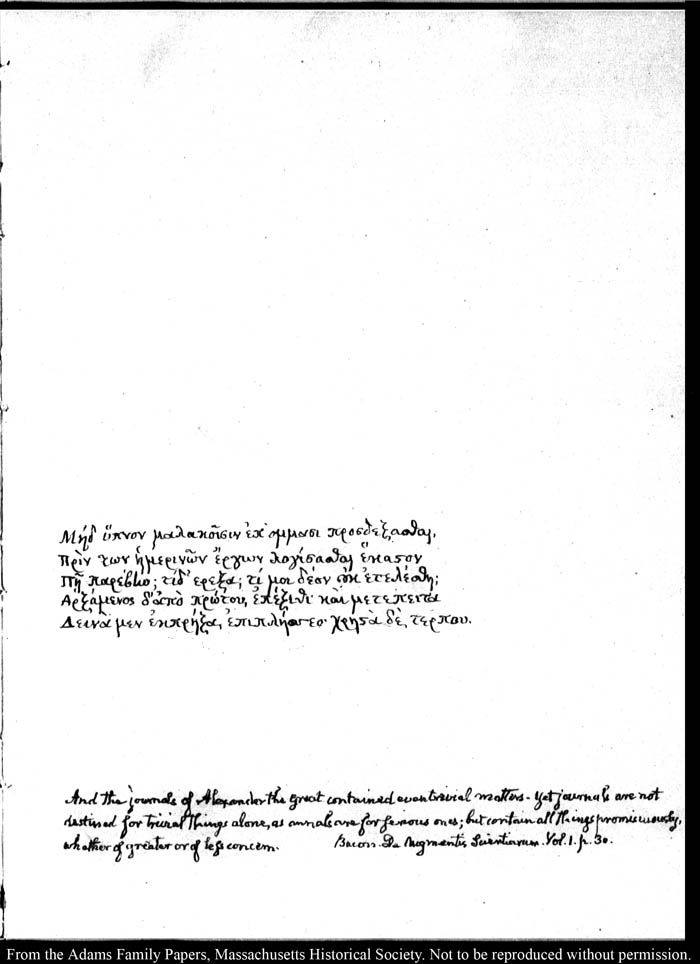 Μήδ' ὕπνον μαλακοῖσιν ἐπ' ὄμμασι προσδέξασθαι,
Πρὶν των ἡμερινῶν ἔργων λογίσασθαι ἕκαστον
Πῆ παρέβην; τίδ' ερεξα; τί μοι δέον οὐκ ἐτελέσθη;
Αρξάμενος δ'ἀπὸ πρώτου, ἐπέξιθι· καὶ μετεπειτα
Δεινὰ μεν ἐκπρήξας, ἐπιπλήσσεο· χρηστὰ δὲ, τερπου.
And the journals of Alexander the great contained even trivial matters - yet journals are not
destined for trivial things alone, as annals are for famous ones; but contain all things promiscuously,
whether of greater or of less concern. Bacon. De Augmentis Scientiarum. Vol. 1. p. 30.
From the Adams Family Papers, Massachusetts Historical Society. Not to be reproduced without permission.